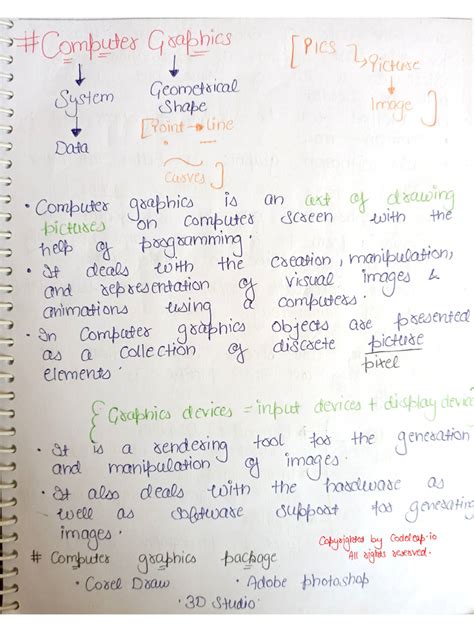 # Computer Graphics
[PICS → Picture
↓
Image]
↓ ↓
System Geometrical
Shape
↓ [Point → Line
Data
Curves]
• Computer graphics is an art of drawing
pictures on computer screen with the
help of programming.
• It deals with the creation, manipulation,
and representation of visual images &
animations using a computers.
• In Computer graphics objects are presented
as a collection of discrete picture
elements. pixel
{Graphics devices = input devices + display device
• It is a rendering tool for the generation
and manipulation of images.
• It also deals with the hardware as
well as software support for generating
images.
Copyrighted by Codeleap.io
All rights reserved.
# Computer graphics package
• Corel Draw • Adobe photoshop
• 3D Studio.